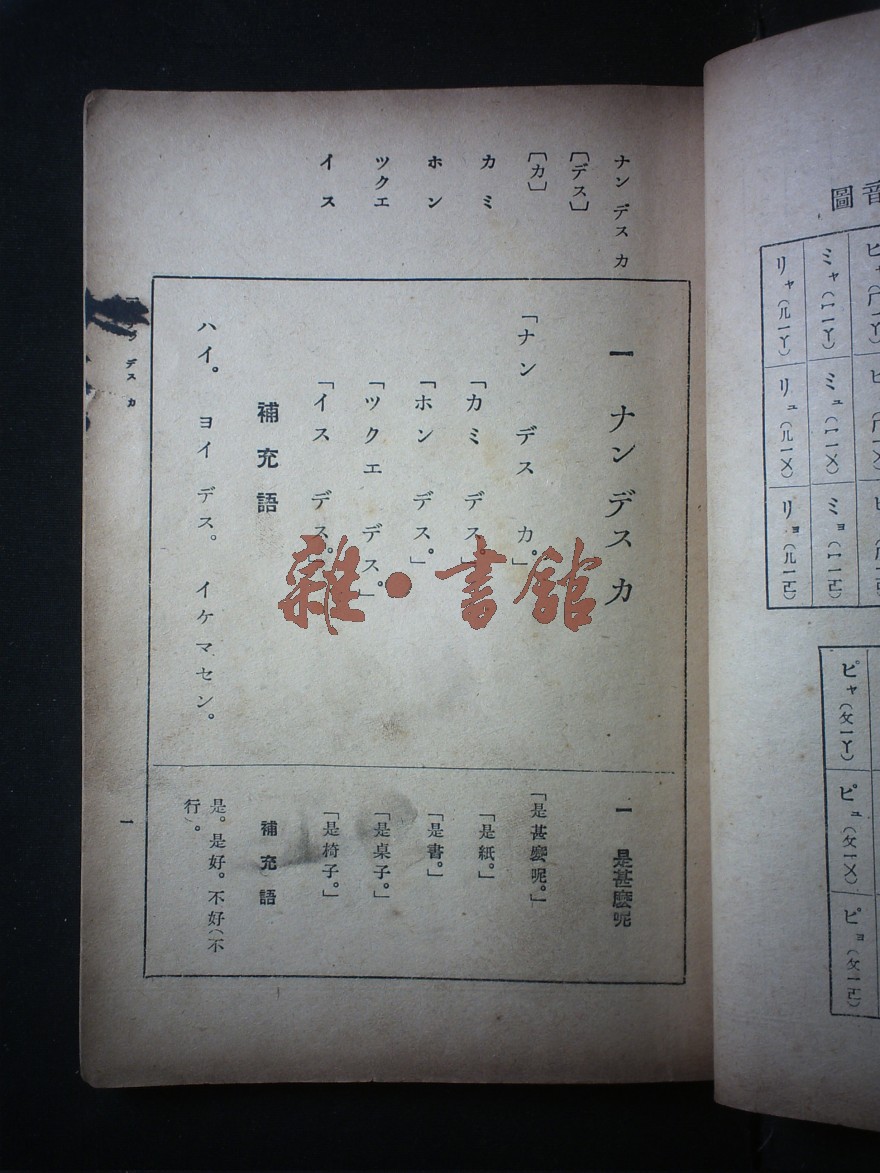 音
圖
ミャ(ㄇㄧㄚ)
ミュ(ㄇㄧㄨ)
ミョ(ㄇㄧㄛ)
リャ(ㄦㄧㄚ)
リュ(ㄦㄧㄨ)
リョ(ㄦㄧㄛ)
ピャ(ㄆㄧㄚ)
ピュ(ㄆㄧㄨ)
ピョ(ㄆㄧㄛ)
ナン デス カ
〔デス〕
〔カ〕
カミ
ホン
ツクエ
イス
一 ナンデスカ
「ナン デス カ。」
「カミ デス。」
「ホン デス。」
「ツクエ デス。」
「イス デス。」
補充語
ハイ。 ヨイ デス。 イケマセン。
一 是甚麼呢
「是甚麼呢。」
「是紙。」
「是書。」
「是桌子。」
「是椅子。」
補充語
是。是好。不好(不
行)。
デス カ
一
雜·書舘